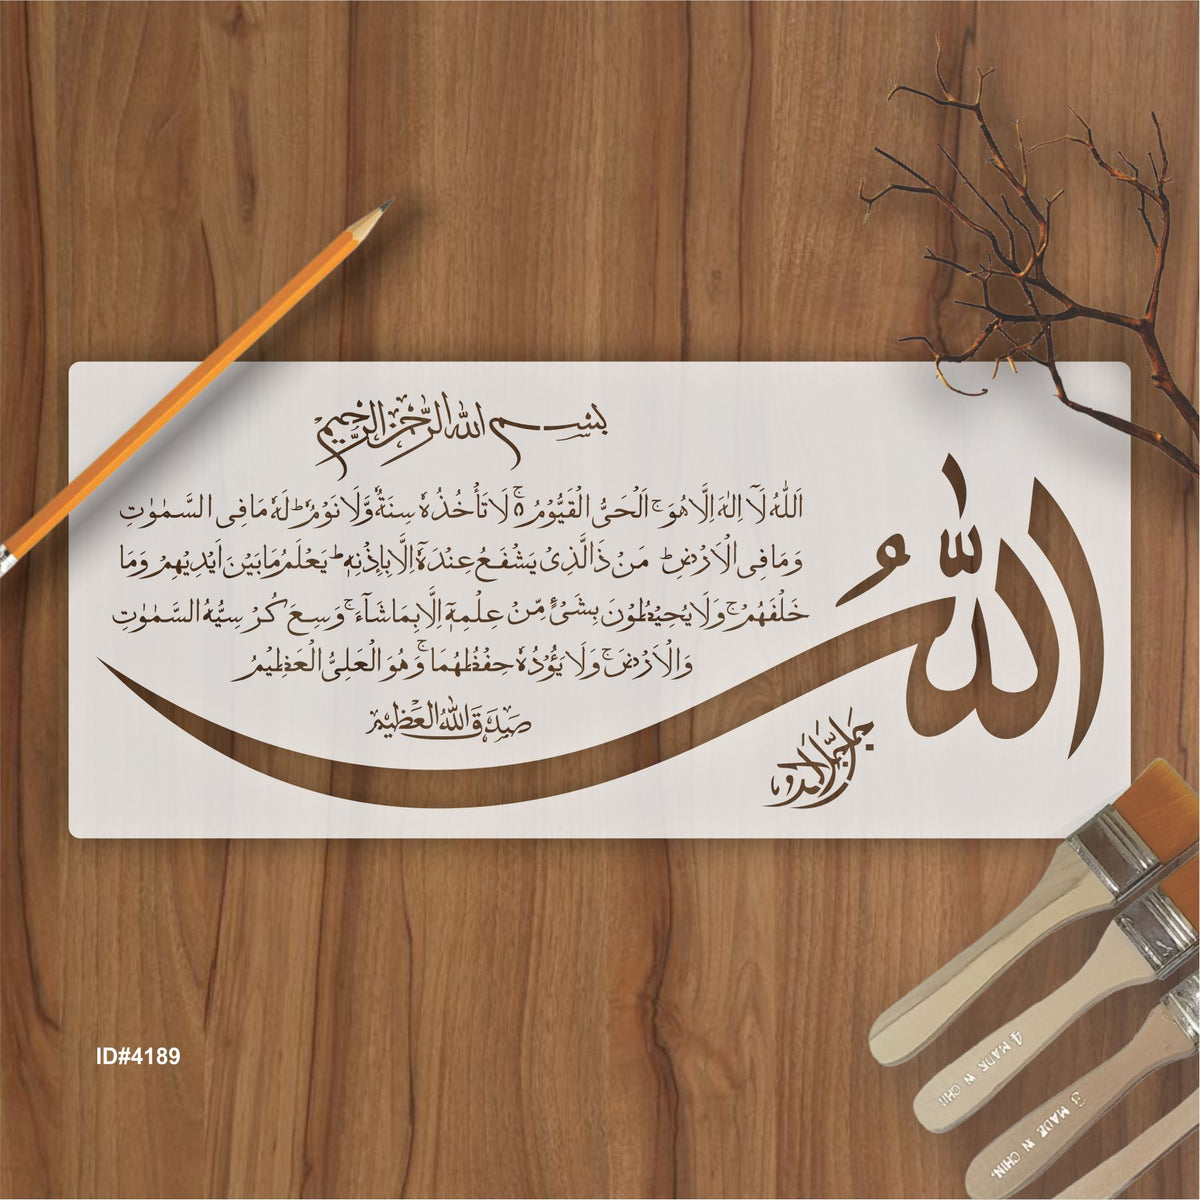 بسم الله الرحمن الرحيم
اَللهُ لَآ اِلٰهَ اِلَّا هُوَ ۚ اَلْحَیُّ الْقَیُّوْمُ ۵ۚ لَا تَأْخُذُهٗ سِنَةٌ وَّلَا نَوْمٌ ؕ لَهٗ مَا فِی السَّمٰوٰتِ
وَمَا فِی الْاَرْضِ ؕ مَنْ ذَا الَّذِیْ یَشْفَعُ عِنْدَهٗۤ اِلَّا بِاِذْنِهٖ ؕ یَعْلَمُ مَا بَیْنَ اَیْدِیْهِمْ وَمَا
خَلْفَهُمْ ۚ وَلَا یُحِیْطُوْنَ بِشَیْءٍ مِّنْ عِلْمِهٖۤ اِلَّا بِمَا شَآءَ ۚ وَسِعَ کُرْسِیُّهُ السَّمٰوٰتِ
وَالْاَرْضَ ۚ وَلَا یَـُٔوْدُهٗ حِفْظُهُمَا ۚ وَهُوَ الْعَلِیُّ الْعَظِیْمُ
صَدَقَ اللهُ الْعَظِیْم
الله
ID#4189
4 MADE IN CHI
3 MADE IN CHIN.